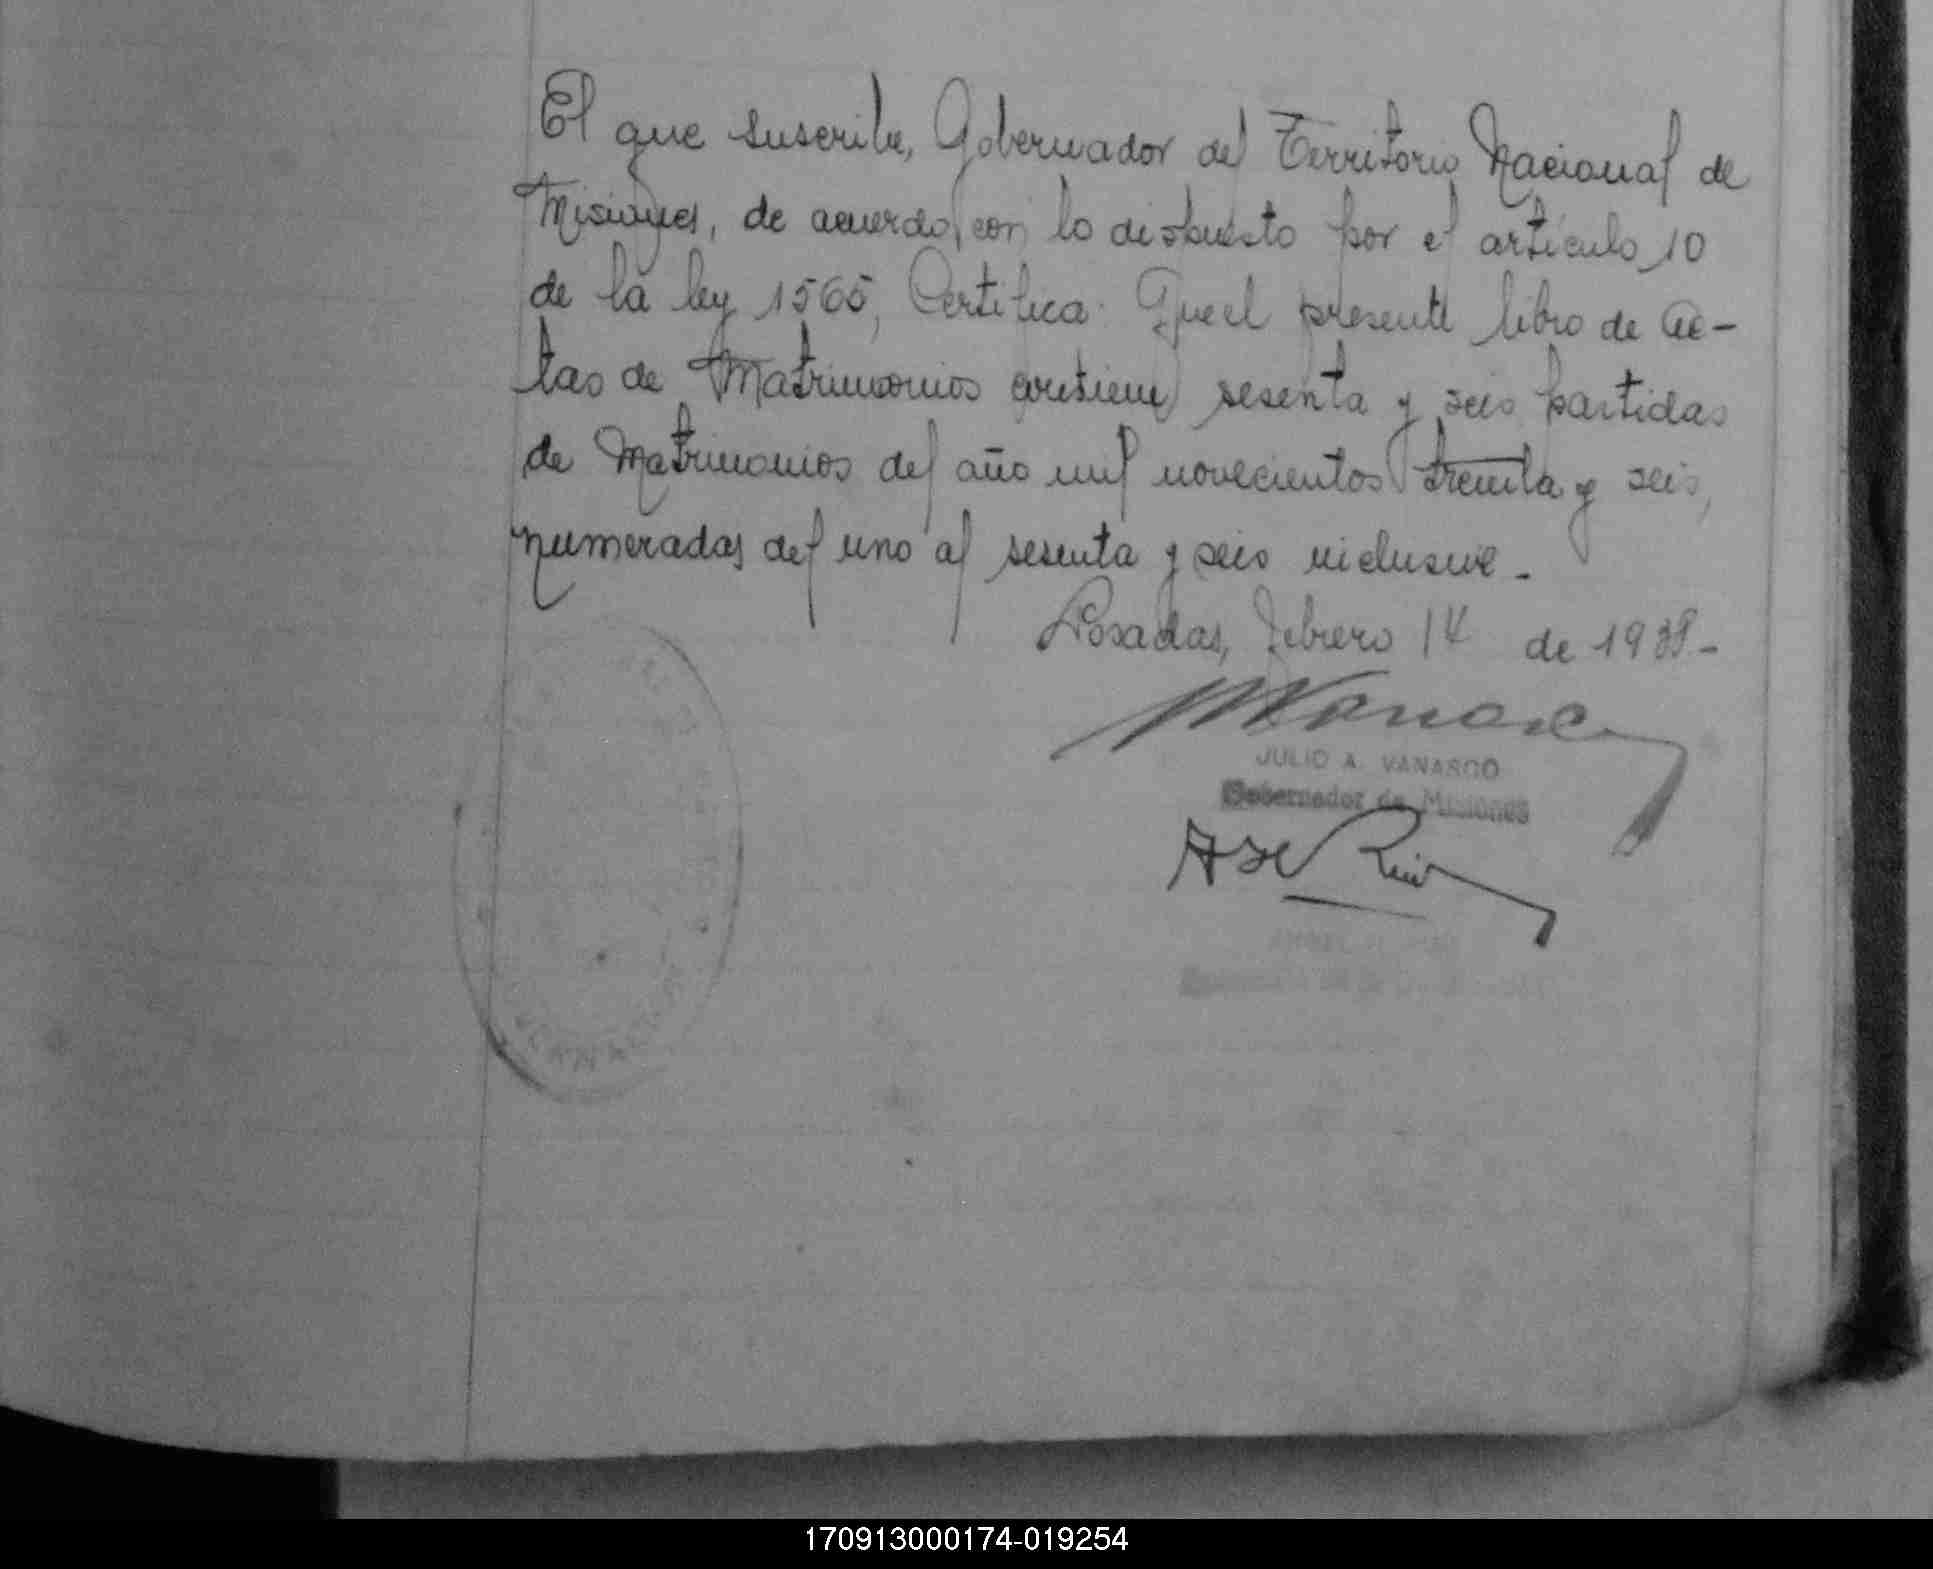 El que suscribe, Gobernador del Territorio Nacional de
Misiones, de acuerdo con lo dispuesto por el artículo 10
de la ley 1565, Certifica: Que el presente libro de Ac-
tas de Matrimonios contiene sesenta y seis partidas
de Matrimonios del año mil novecientos treinta y seis,
numeradas del uno al sesenta y seis inclusive.-
Posadas, febrero 14 de 1938.-
JULIO A. VANASCO
Gobernador de Misiones
170913000174-019254